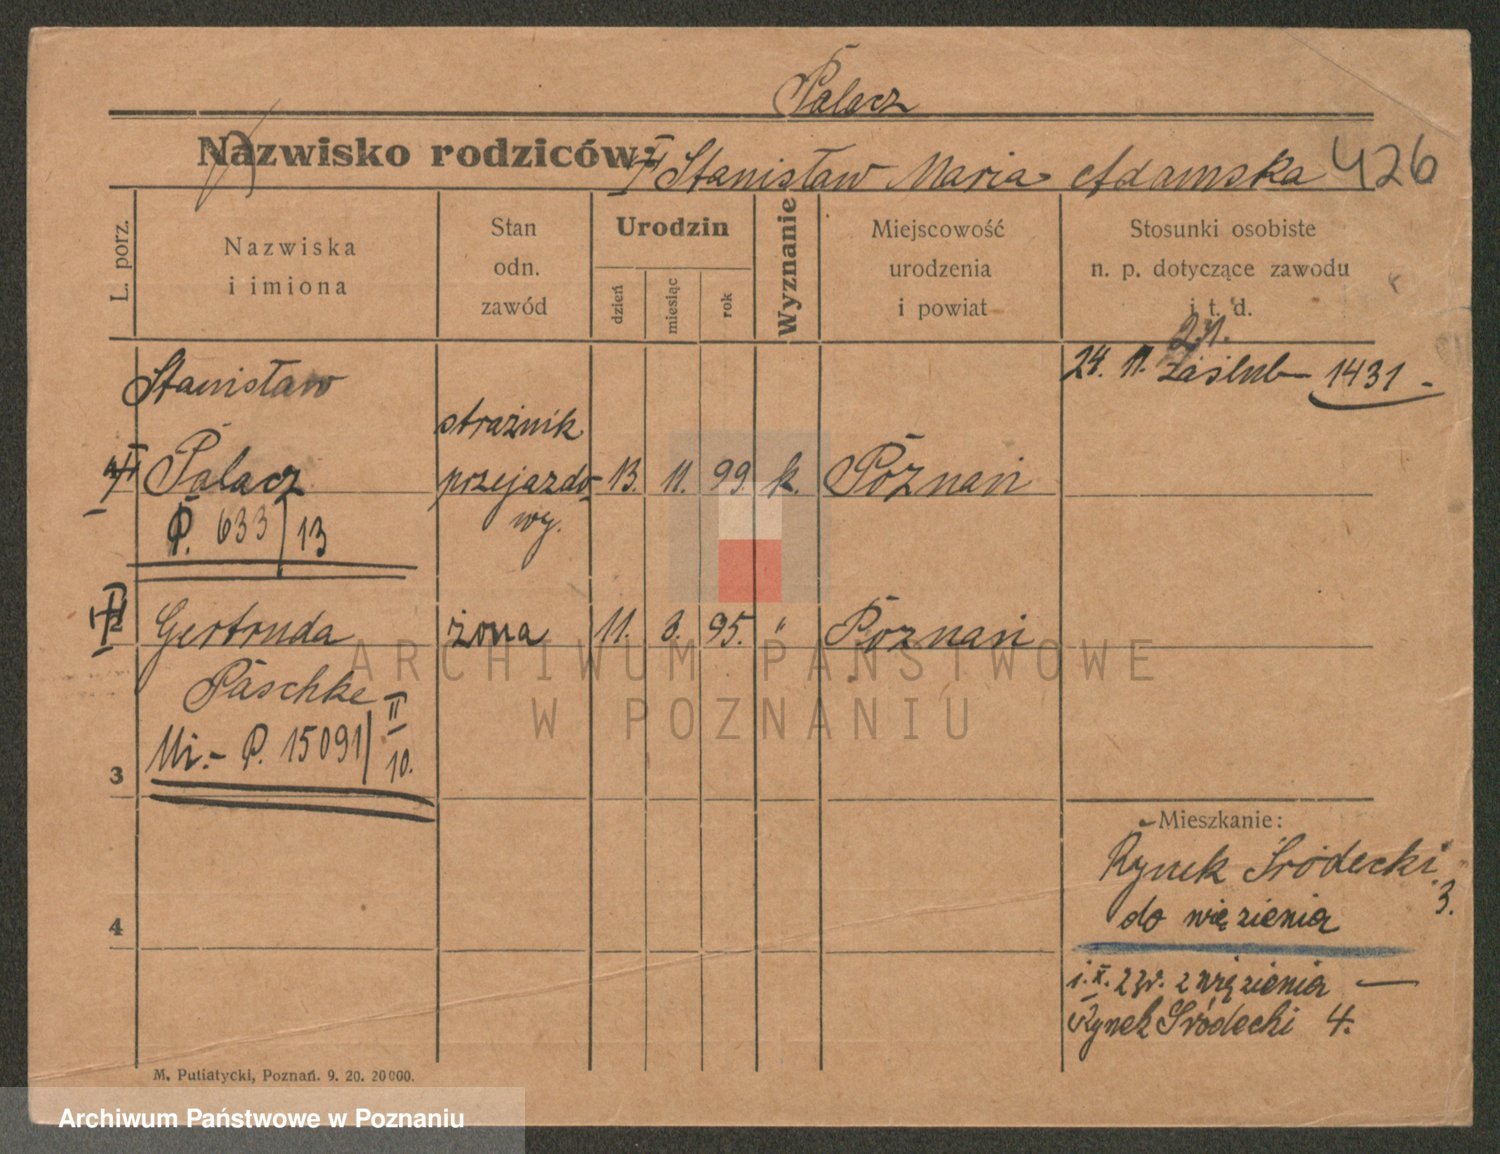 Palacz
Nazwisko rodziców:
Stanisław Maria Adamska 426
L. porz.
Nazwiska
i imiona
Stan
odn.
zawód
Urodzin
dzień
miesiąc
rok
Wyznanie
Miejscowość
urodzenia
i powiat
Stosunki osobiste
n. p. dotyczące zawodu
i t. d.
21.
24. 11. zaślub 1431 -
Stanisław
Palacz
strażnik
przejazdo-
wy.
13. 11. 99. k. Poznań
P. 633/13
2
Gertruda żona 11. 3. 95. " Poznań
Paschke
Mi.- P. 15091/II
10.
3
4
Mieszkanie:
Rynek Śródecki
3.
do więzienia
1. X. zw. z więzienia —
Rynek Śródecki 4.
M. Putiatycki, Poznań. 9. 20. 20000.
ARCHIWUM PAŃSTWOWE
W POZNANIU
Archiwum Państwowe w Poznaniu